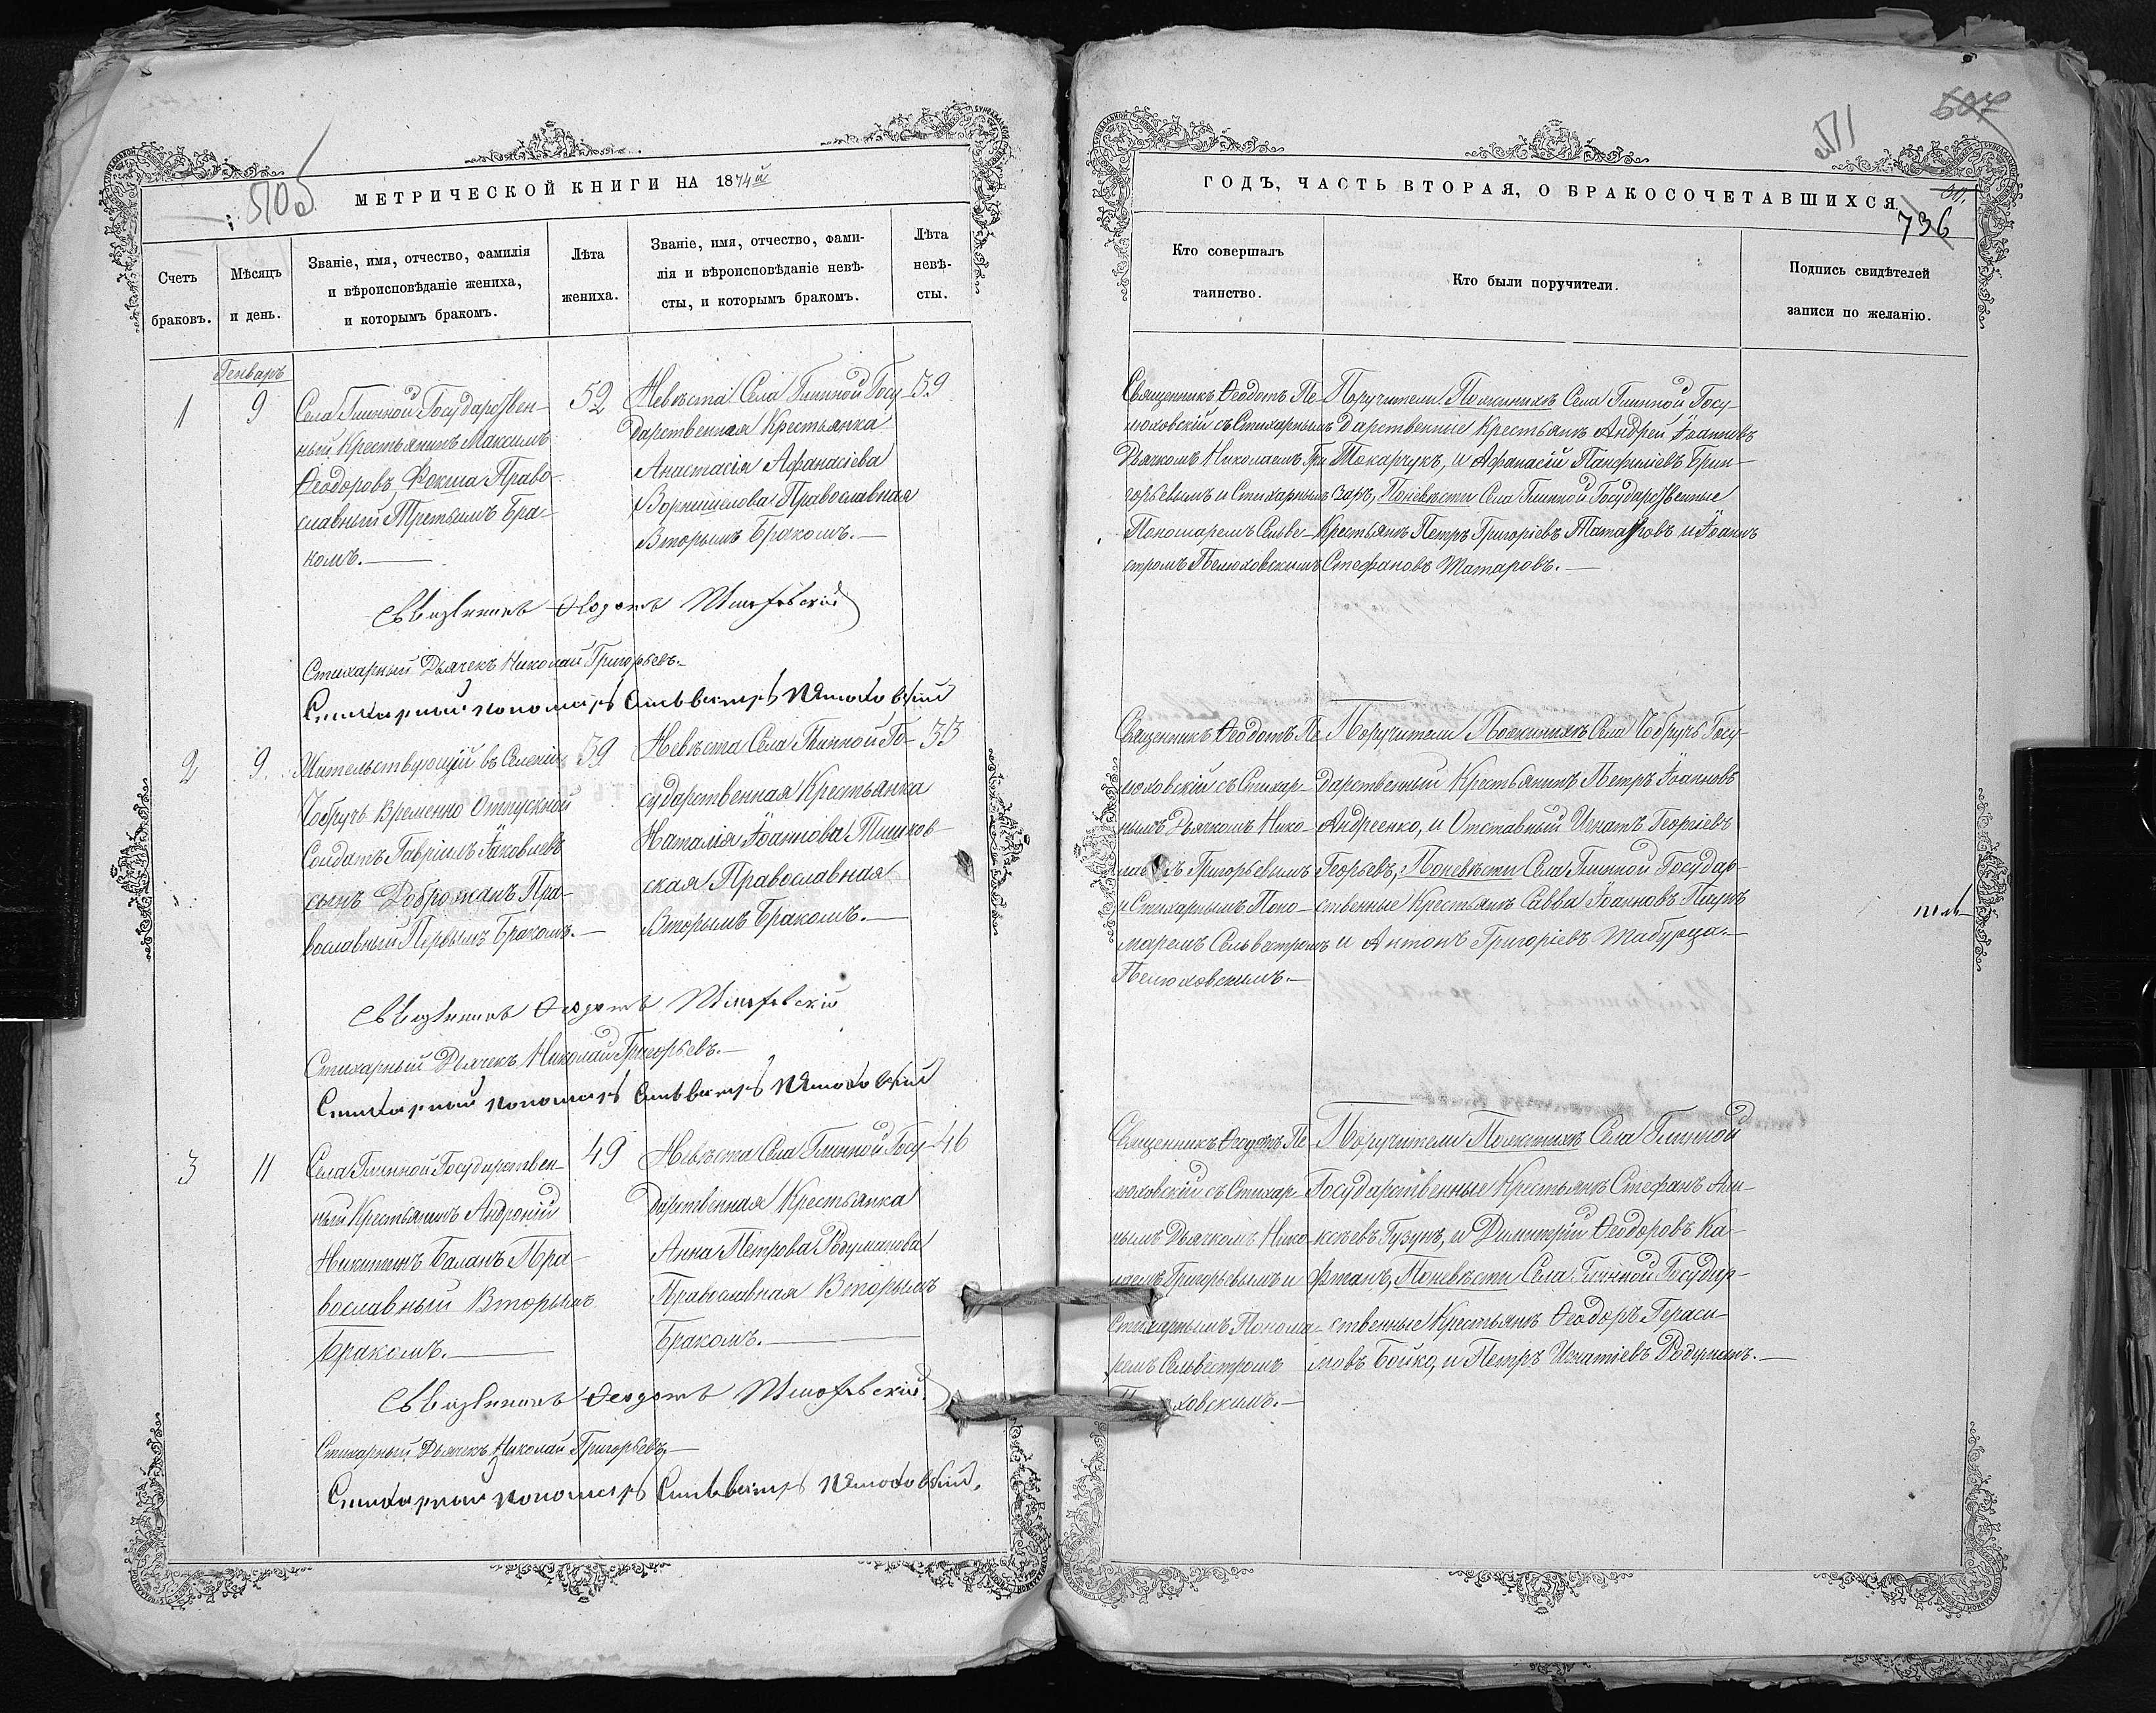 505
МЕТРИЧЕСКОЙ КНИГИ НА 1874й
Счетъ браковъ.
Мѣсяцъ и день.
Званіе, имя, отчество, фамилія
и вѣроисповѣданіе жениха,
и которымъ бракомъ.
Лѣта
жениха.
Званіе, имя, отчество, фами-
лія и вѣроисповѣданіе невѣ-
сты, и которымъ бракомъ.
Лѣта
невѣ-
сты.
Генварь
1
9
Села Глинной Государствен-
ный Крестьянинъ Максимъ
Ѳеодоровъ Фокша Право-
славный Третьимъ Бра-
комъ.
52
Невѣста Села Глинной Госу-
дарственная Крестьянка
Анастасія Афанасіева
Православная
Вторымъ Бракомъ.
39
Священникъ Ѳеодотъ
Стихарный Дьячекъ Николай Григорьевъ.
Стихарный пономарь Сильвестръ
2
9
Жительствующій въ Селеніи
Чобручъ Временно Отпускной
Солдатъ Гавріилъ Іаковлевъ
сынъ Доброжанъ Пра-
вославный Первымъ Бракомъ.
39
Невѣста Села Глинной Го-
сударственная Крестьянка
Наталія Іоаннова Тишков-
ская Православная
Вторымъ Бракомъ.
33
Священникъ Ѳеодотъ
Стихарный Дьячекъ Николай Григорьевъ.
Стихарный пономарь Сильвестръ
3
11
Села Глинной Государствен-
ный Крестьянинъ Андроній
Никитинъ Баланъ Пра-
вославный Вторымъ
Бракомъ.
49
Невѣста Села Глинной Госу-
дарственная Крестьянка
Анна Петрова Родуманова
Православная Вторымъ
Бракомъ.
46
Священникъ Ѳеодотъ
Стихарный Дьячекъ Николай Григорьевъ.
Стихарный пономарь Сильвестръ
507
736
ГОДЪ, ЧАСТЬ ВТОРАЯ, О БРАКОСОЧЕТАВШИХСЯ.
Кто совершалъ
таинство.
Кто были поручители.
Подпись свидѣтелей
записи по желанію.
Священникъ Ѳеодотъ Пе-
люховскій съ Стихарнымъ
Дьячкомъ Николаемъ Гри-
горьевымъ и Стихарнымъ
Пономаремъ Сельве-
стромъ Пелюховскимъ
Поручители Пожинихѣ Села Глинной Госу-
дарственные Крестьянъ Андрей Іоанновъ
Токарчукъ, и Афанасій Панфиліевъ Брин-
зарь, Поневѣсти Села Глинной Государственные
Крестьянъ Петръ Григоріевъ Татаровъ и Іоаннъ
Стефановъ Татаровъ.
Священникъ Ѳеодотъ Пе-
люховскій съ Стихар-
нымъ Дьячкомъ Нико-
лаемъ Григорьевымъ
и Стихарнымъ Поно-
маремъ Сельвестромъ
Пелюховскимъ.
Поручители Пожинихѣ Села Чобручъ Госу-
дарственный Крестьянинъ Петръ Іоанновъ
Андреенко, и Отставный Игнатъ Георгіевъ
Георьевъ, Поневѣсти Села Глинной Государ-
ственные Крестьянъ Савва Іоанновъ Паунъ
и Антонъ Григоріевъ Табурца.
Священникъ Ѳеодотъ Пе-
люховскій съ Стихар-
нымъ Дьячкомъ Нико-
лаемъ Григорьевымъ и
Стихарнымъ Понома-
ремъ Сельвестромъ
ховскимъ.
Поручители Пожинихѣ Села Глинной
Государственные Крестьянъ Стефанъ Але-
ксѣевъ Гузунъ, и Димитрій Ѳеодоровъ Ка-
фтанъ, Поневѣсти Села Глинной Государ-
ственные Крестьянъ Ѳеодоръ Гераси-
мовъ Бойко, и Петръ Игнатіевъ Родуманъ.